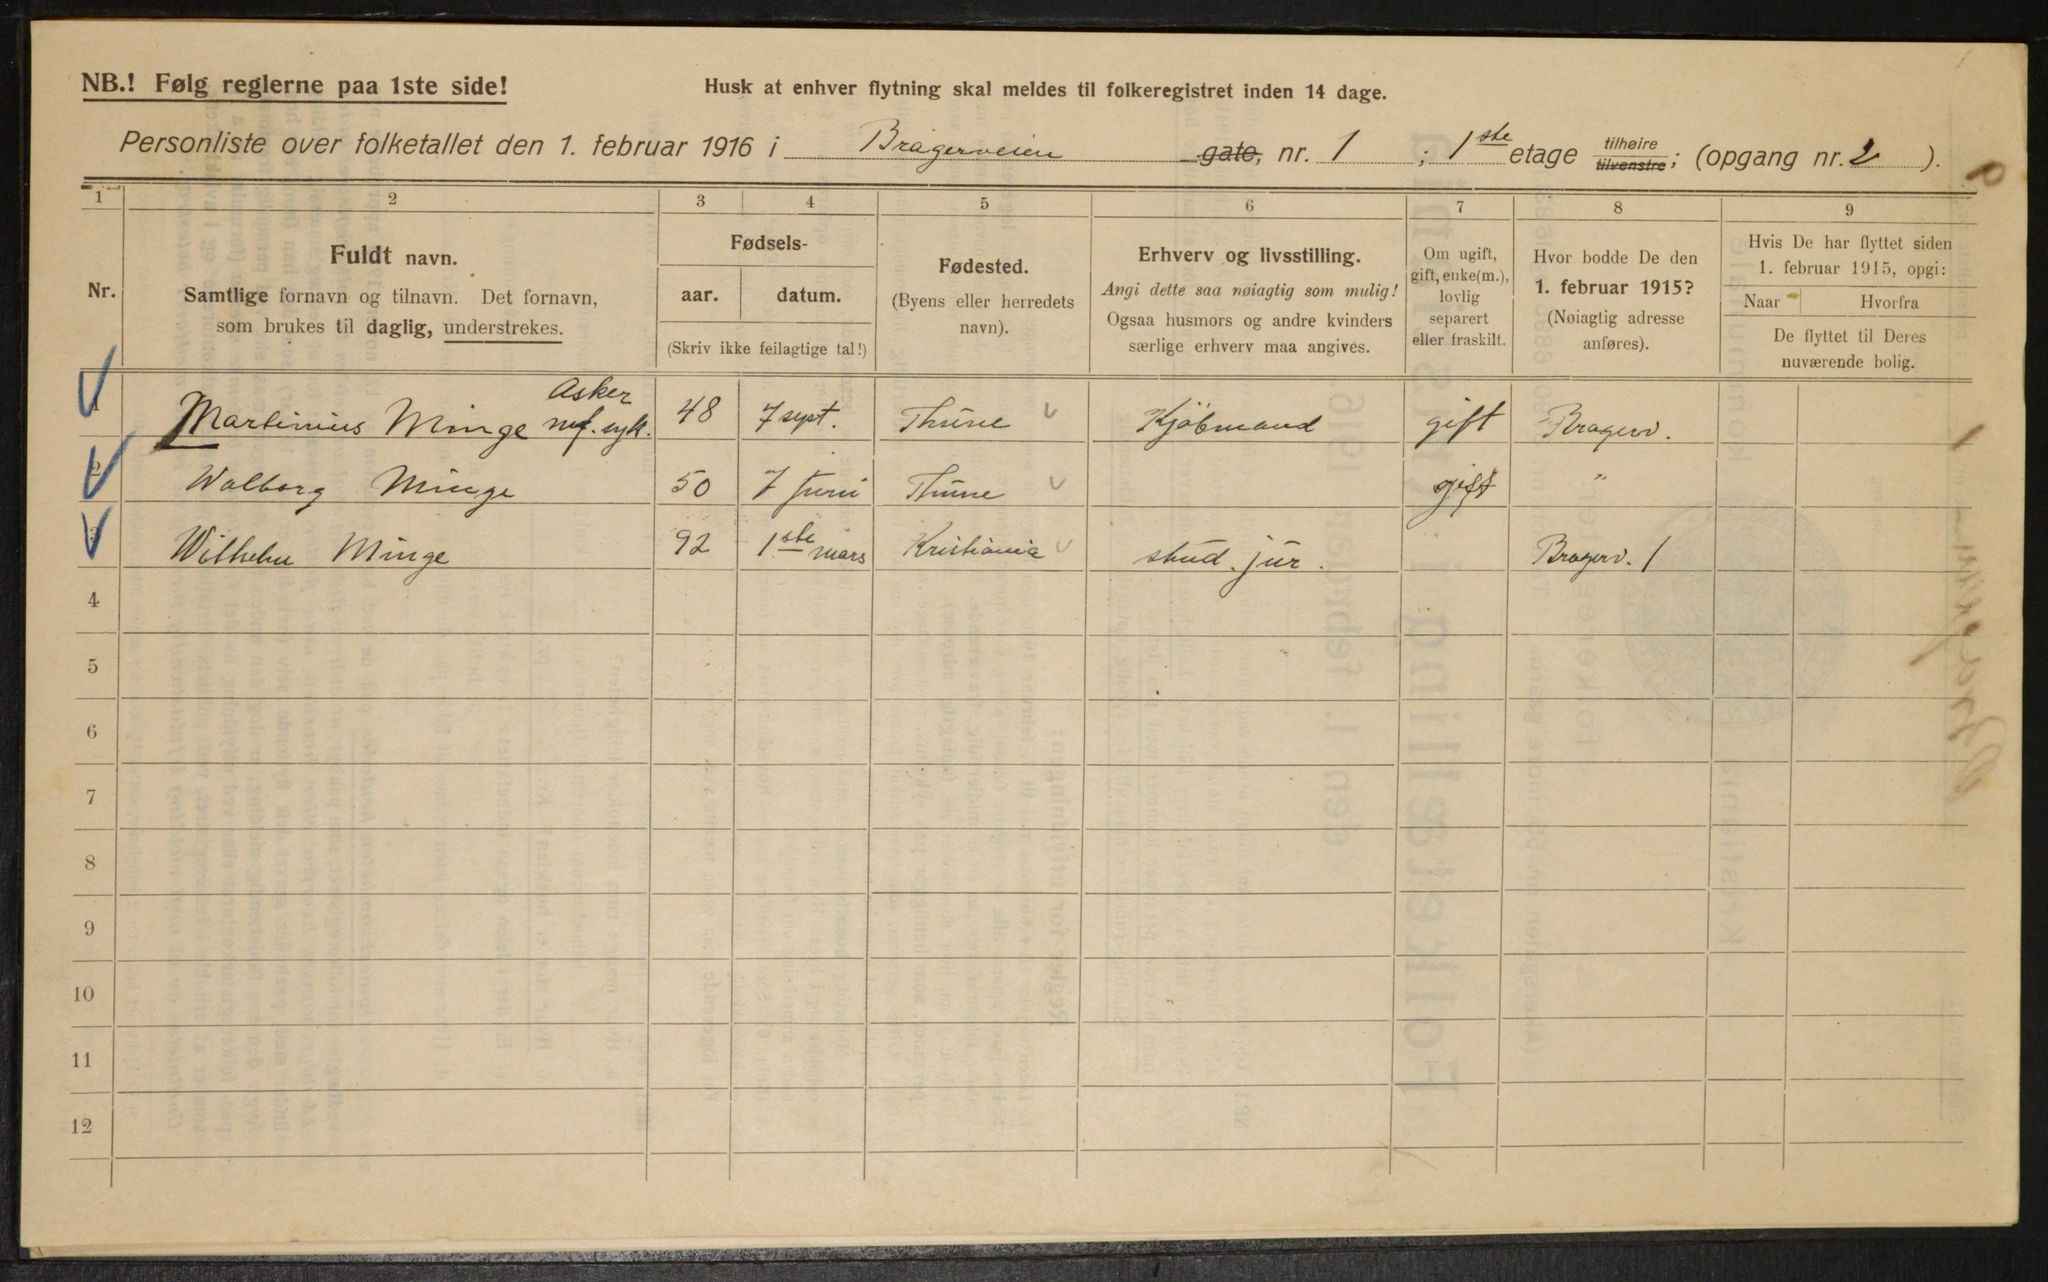 NB.! Følg reglerne paa 1ste side!
Husk at enhver flytning skal meldes til folkeregistret inden 14 dage.
Personliste over folketallet den 1. februar 1916 i Bragerveien gate, nr. 1 ; 1ste etage tilhøire tilvenstre; (opgang nr. 2 ).
1 2 3 4 5 6 7 8 9
Nr.
Fuldt navn.
Samtlige fornavn og tilnavn. Det fornavn,
som brukes til daglig, understrekes.
Fødsels-
aar. datum.
(Skriv ikke feilagtige tal!)
Fødested.
(Byens eller herredets
navn).
Erhverv og livsstilling.
Angi dette saa nøiagtig som mulig!
Ogsaa husmors og andre kvinders
særlige erhverv maa angives.
Om ugift,
gift, enke(m.),
lovlig
separert
eller fraskilt.
Hvor bodde De den
1. februar 1915?
(Nøiagtig adresse
anføres).
Hvis De har flyttet siden
1. februar 1915, opgi:
Naar Hvorfra
De flyttet til Deres
nuværende bolig.
Asker
1 Martinius Minge 48 7 sept. Thune Kjöbmand gift Bragerv.
2 Walborg Minge 50 7 Juni Thune gift "
3 Wilhelm Minge 92 1ste mars Kristiania stud. jur. Bragerv. 1
4
5
6
7
8
9
10
11
12